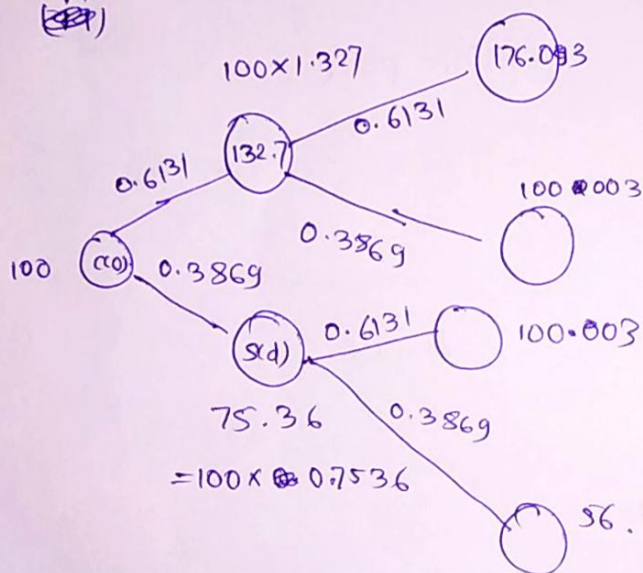 100×1.327
176.093
0.6131
132.7
0.6131
100.003
0.3869
100
0.3869
0.6131
100.003
S(d)
75.36
0.3869
=100× 0.7536
56.